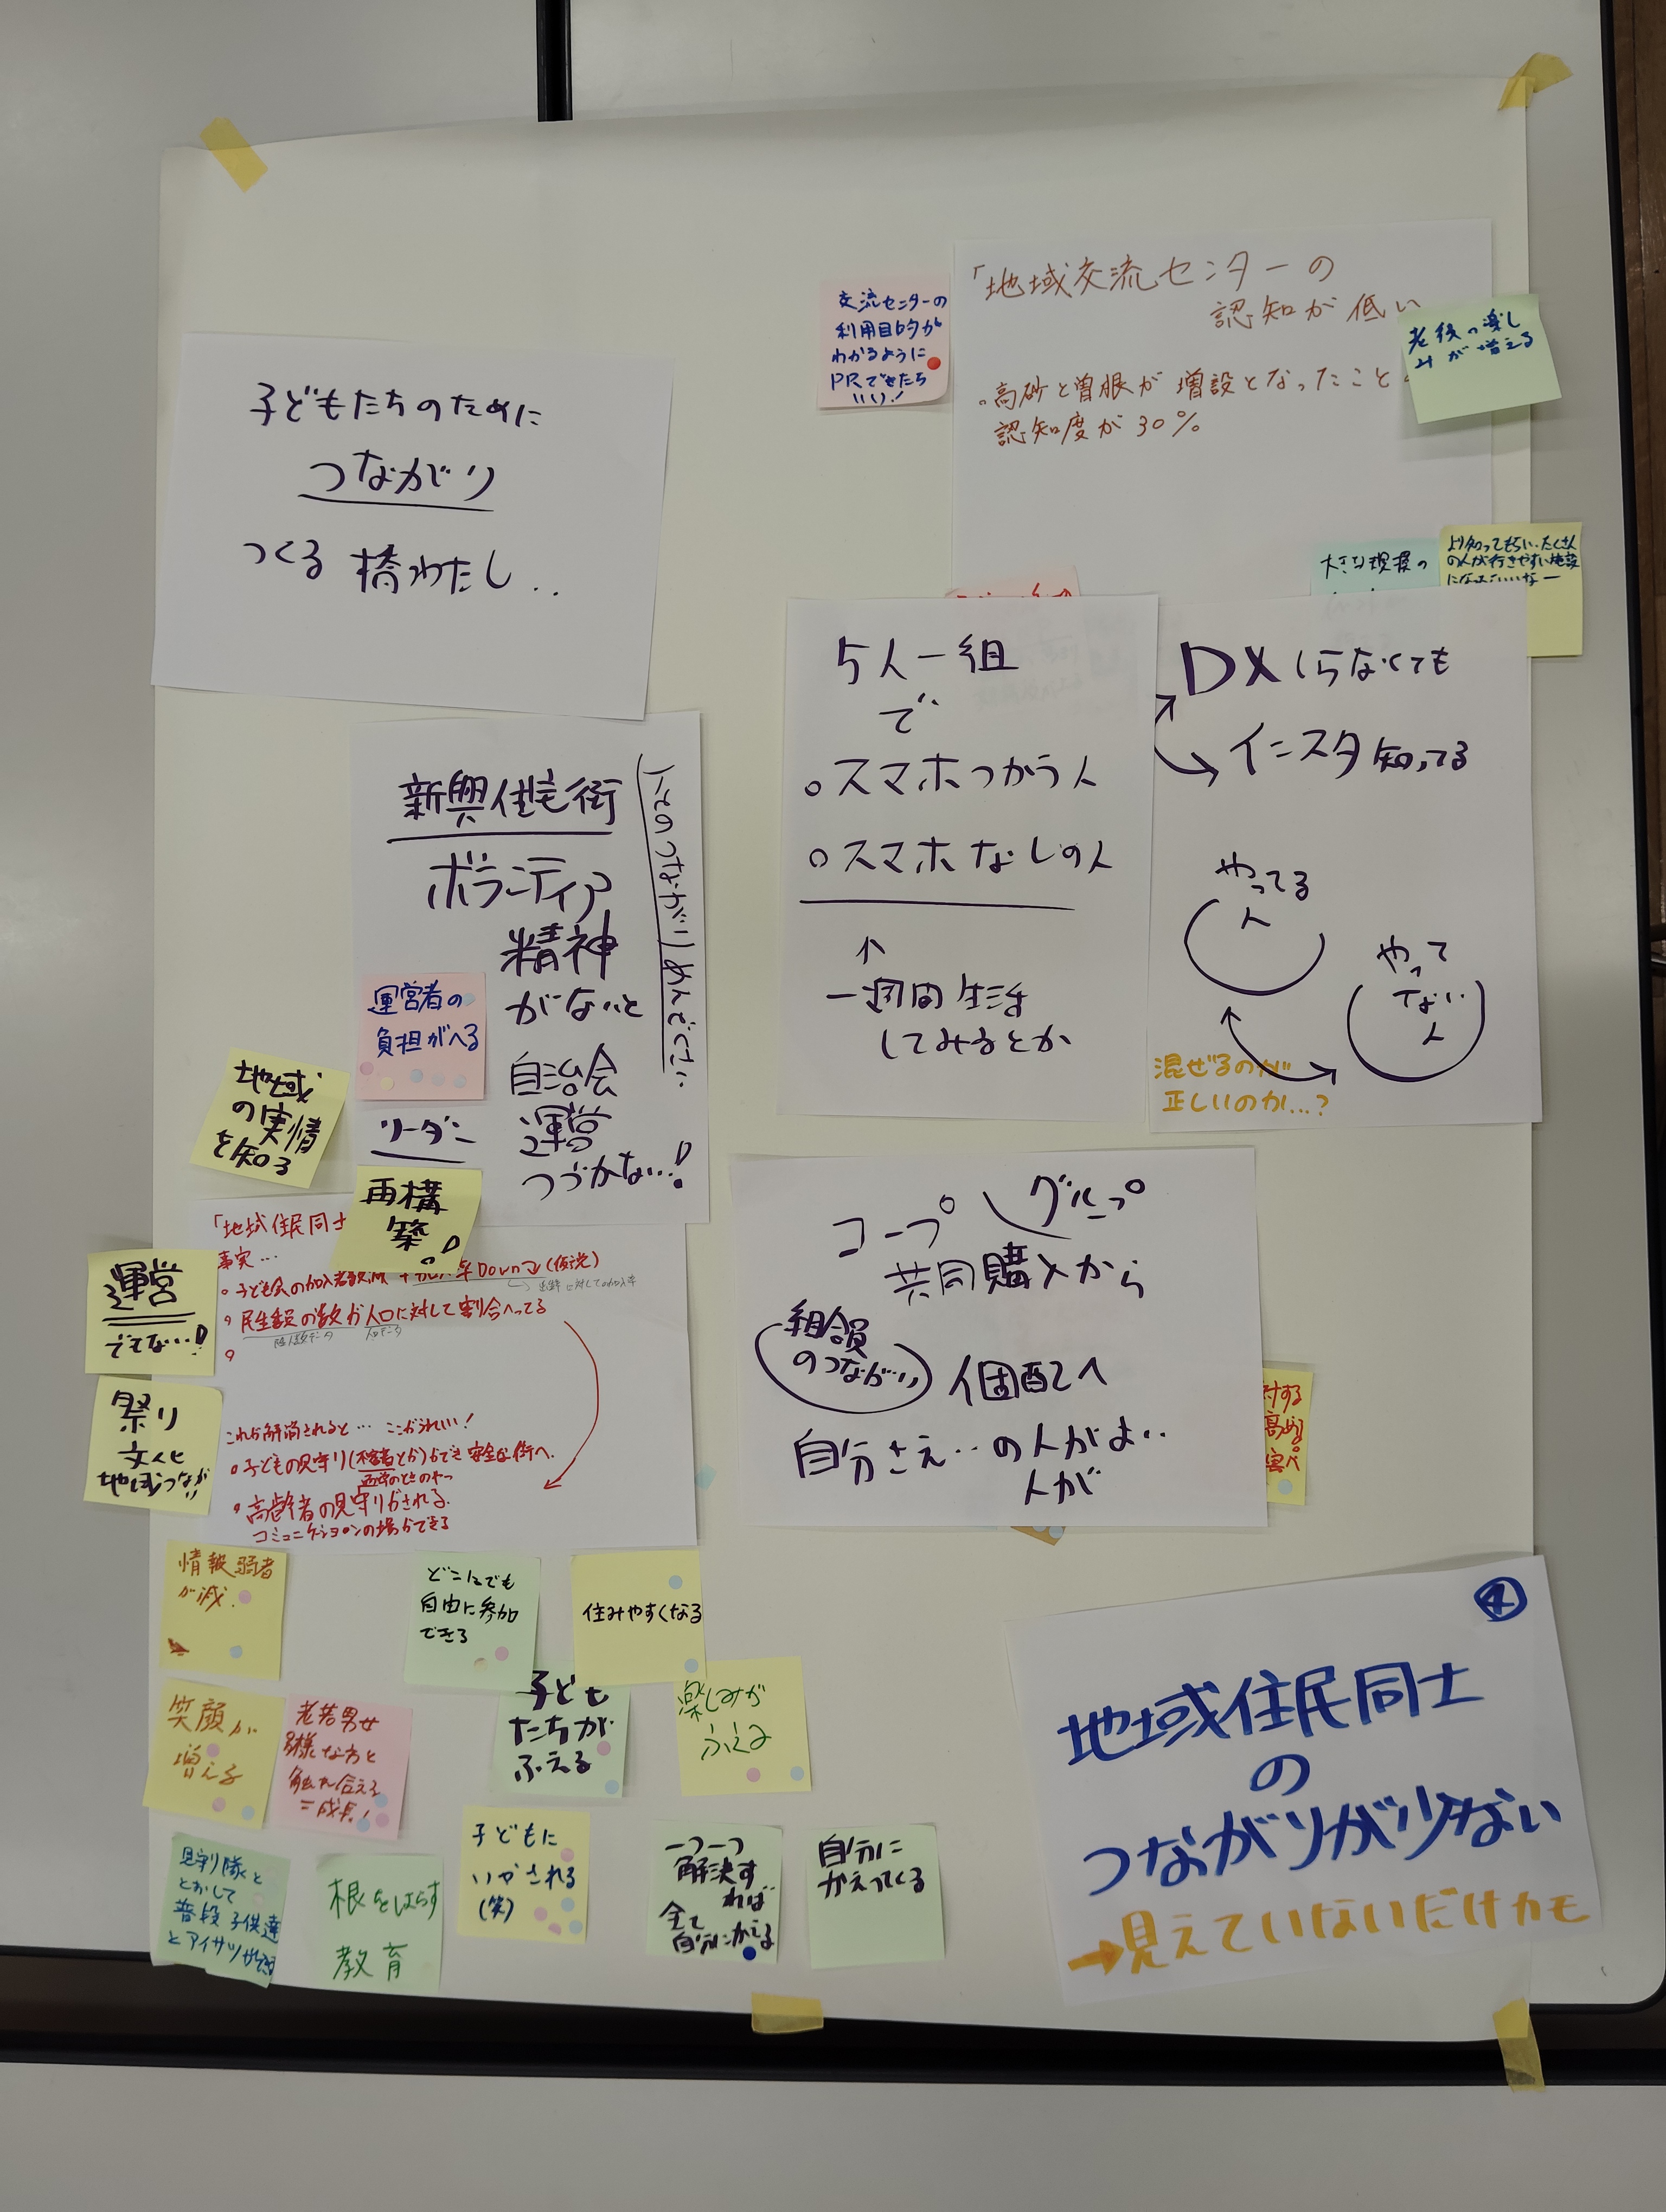 交流センターの
利用目的が
わかるように
PRできたら
いい!
「地域交流センターの
認知が低い
老後の楽し
みが増える
高砂と曽根が増設となったこと
認知度が30%
子どもたちのために
つながり
つくる橋わたし..
大きな規模の
より知ってもらい、たくさん
の人が行きやすい施設
になったらいいなー
5人一組
で
スマホつかう人
スマホなしの人
↑
一週間生活
してみるとか
DXしらなくても
インスタ知ってる
やってる
人
やって
てない
人
混ぜるのが
正しいのか…?
新興住宅街
ボランティア
精神
がないと
自治会
運営
つづかない…!
人とのつながりめんどくさい
運営者の
負担がへる
リーダー
地域
の実情
を知る
再構
築!
「地域住民同士
事実…
民生委員の数が人口に対して割合へってる
人口データ
これが解消されると… ここがうれしい!
子どもの見守り(不審者とか)ができ安全な街へ.
高齢者の見守りがされる.
コミュニケーションの場ができる
運営
できない…!
祭り
文化
コープ グループ
共同購入から
組合員
のつながり
個配へ
自分さえ…の人がよい..
人が
対する
高める
情報弱者
が減.
どこにでも
自由に参加
できる
住みやすくなる
笑顔が
増える
老若男女
多様な方と
触れ合える
=成長!
子ども
たちが
ふえる
楽しみが
ふえる
見守り隊と
とかして
普段子供達
とアイサツができる
根をはらす
教育
子どもに
いかされる
(笑)
一つ一つ
解決す
れば
全て
自分にかえる
自分に
かえってくる
地域住民同士
の
つながりが少ない
→見えていないだけかも